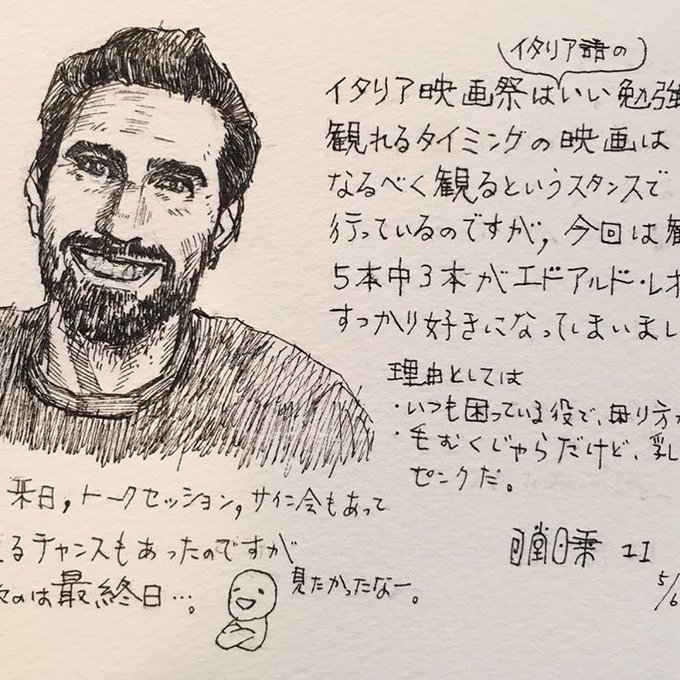 イタリア語の
イタリア映画祭はいい勉強
観れるタイミングの映画は
なるべく観るというスタンスで
行っているのですが,今回は観
5本中3本がエドアルド・レオ
すっかり好きになってしまいまし
理由としては
・いつも困っている役で、困り方が
・毛むくじゃらだけど、乳
ピンクだ。
来日,トークセッション,サイン会もあって
るチャンスもあったのですが
のは最終日…。
見たかったなー。
5/6